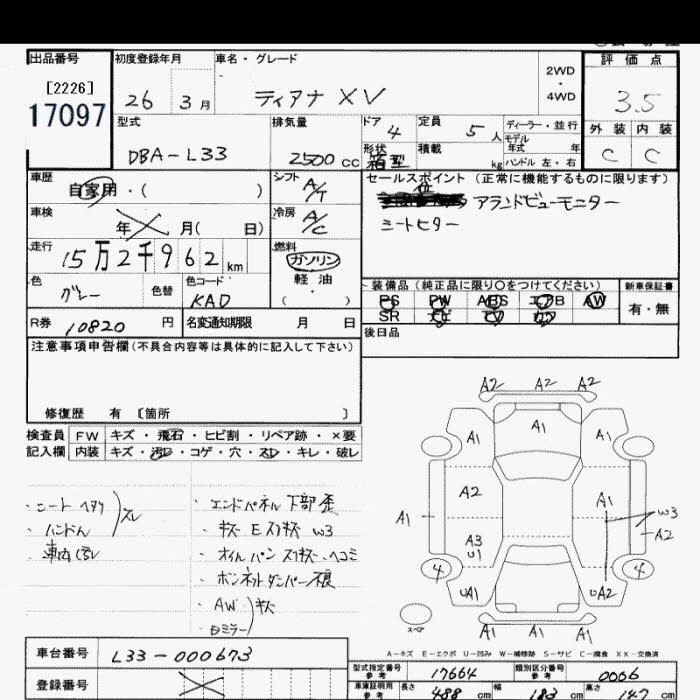 出品番号 初度登録年月 車名・グレード 評価点
[2226] 2WD
17097 26 3月 ティアナ XV 4WD 3.5
型式 排気量 ドア 4 定員 5人 ディーラー・並行 外装 内装
DBA-L33 2500cc 形状 箱型 積載 kg モデル年式 年 ハンドル 左・右 C C
車歴 自家用・( ) シフト A/T セールスポイント (正常に機能するものに限ります)
アランドビューモニター
車検 年 月( 日) 冷房 A/C シートヒター
走行 15万2千962km 燃料 ガソリン
軽油
・
( )
色 グレー 色替 色コード KAD 装備品 (純正品に限り○をつけてください) 新車保証書
PS PW ABS エアB AW 有・無
R券 10820円 名変通知期限 月 日 SR
後日品
注意事項申告欄(不具合内容等は具体的に記入して下さい)
修復歴 有 〔箇所 〕
検査員 FW キズ・飛石・ヒビ割・リペア跡・×要
記入欄 内装 キズ・汚レ・コゲ・穴・スレ・キレ・破レ
・シート ・エンドパネル下部歪
スレ ・キズ Eスリキズ W3
・オイルパン スリキズ・ヘコミ
・ボンネットダンパー不良
・AW キズ
・ドミラー
A2 A2 A2
A1 A1 A1
A2 A1 W3
A1 A2
A3
U1
4 4
UA1 A1 UA2
スペア
A1 A1 A1
A-キズ E-エクボ U-凹み W-補修跡 S-サビ C-腐食 XX-交換済
車台番号 L33-000673
型式指定番号 参考 17664 類別区分番号 参考 0006
登録番号 車庫証明用 参考 長さ 488cm 幅 183cm 高さ 147cm